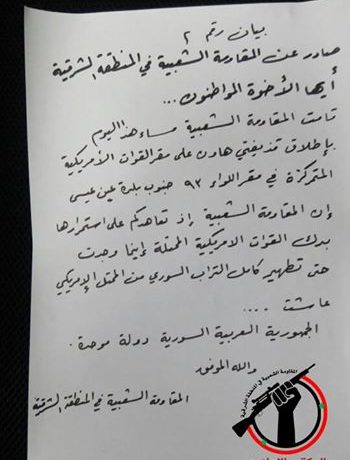 بيان رقم ٢
صادر عن المقاومة الشعبية في المنطقة الشرقية
أيها الأخوة المواطنون ...
قامت المقاومة الشعبية مساء هذا اليوم
بإطلاق قذيفتي هاون على مقر القوات الأمريكية
المتمركزة في مقر اللواء ٩٣ جنوب بلدة عين عيسى
إن المقاومة الشعبية إذ تعاهدكم على استمرارها
بدك القوات الامريكية المحتلة إينما وجدت
حتى تطهير كامل التراب السوري من المحتل الإمريكي
عاشت ....
الجمهورية العربية السورية دولة موحدة.
والله الموفق
المقاومة الشعبية في المنطقة الشرقية
المقاومة الشعبية في المنطقة الشرقية